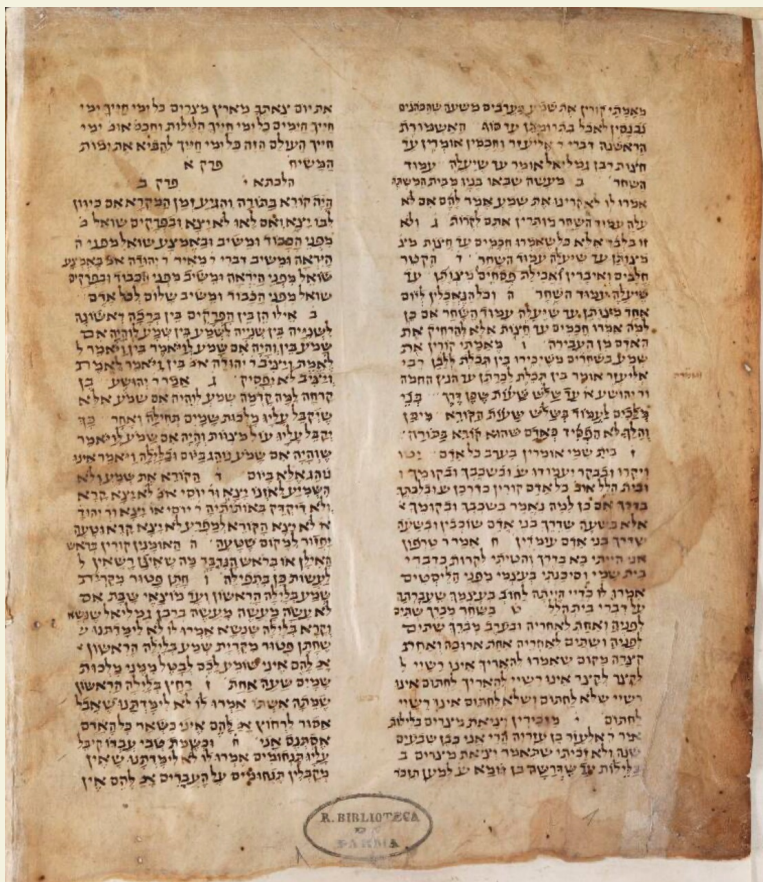 מאמתי קורין את שמע בערבים משעה שהכהנים
נכנסין לאכל בתרומתן עד סוף האשמורת
הראשונה דברי ר אליעזר וחכמין אומרין עד
חצות רבן גמליאל אומר עד שיעלה עמוד
השחר ב מעשה שבאו בניו מבית המשתה
אמרו לו לא קרינו את שמע אמר להם אם לא
עלה עמוד השחר מותרין אתם לקרות ג ולא
זו בלבד אלא כל שאמרו חכמים עד חצות מצ
מצותן עד שיעלה עמוד השחר ד הקטר
חלבים ואיברין ואכילת פסחים מצותן עד
שיעלה עמוד השחר ה וכל הנאכלין ליום
אחד מצותן עד שיעלה עמוד השחר אם כן
למה אמרו חכמים עד חצות אלא להרחיק את
האדם מן העבירה ו מאמתי קורין את
שמע בשחרים משיכירו בין תכלת ללבן רבי
אליעזר אומר בין תכלת לכרתן עד הנץ החמה
ור יהושע א עד שלש שעות שכן דרך בני
מלכים לעמוד בשלש שעות הקורא מיכן
והלך לא הפסיד כאדם שהוא קורא בתורה
ז בית שמי אומרין בערב כל אדם יטו
ויקרו ובבקר יעמודו שנ ובשכבך ובקומיך ו
ובית הלל אומ כל אדם קורין כדרכן שנ ובלכתך
בדרך אם כן למה נאמר בשכבך ובקומיך
אלא בשעה שדרך בני אדם שוכבין ובשעה
שדרך בני אדם עומדין ח אמר ר טרפון
אני הייתי בא בדרך והטיתי לקרות כדברי
בית שמי וסיכנתי בעצמי מפני הליסטים
אמרו לו כדיי הייתה לחוב בעצמך שעברתה
על דברי בית הלל ט בשחר מברך שתים
לפניה ואחת לאחריה ובערב מברך שתים
לפניה ושתים לאחריה אחת ארוכה ואחת
קצרה מקום שאמרו להאריך אינו רשיי ל
לקצר לקצר אינו רשיי להאריך לחתום אינו
רשיי שלא לחתום ושלא לחתום אינו רשיי
לחתום י מזכירין יציאת מצרים בלילות
אמר ר אלעזר בן עזריה הרי אני כבן שבעים
שנה ולא זכיתי שתאמר יציאת מצרים ב
בלילות עד שדרשה בן זומא שנ למען תזכר
את יום צאתך מארץ מצרים כל ימי חייך ימי
חייך הימים כל ימי חייך הלילות וחכמ אומ ימי
חייך העולם הזה כל ימי חייך להביא את ימות
המשיח פרק א
הלכתא י פרק ב
היה קורא בתורה והגיע זמן המקרא אם כיוון
לבו יצא ואם לאו לא יצא ובפרקים שואל מ
מפני הכבוד ומשיב ובאמצע שואל מפני ה
היראה ומשיב דברי ר מאיר ר יהודה אומ באמצע
שואל מפני היראה ומשיב מפני הכבוד ובפרקים
שואל מפני הכבוד ומשיב שלום לכל אדם
ב אילו הן בין הפרקים בין ברכה ראשונה
לשנייה בין שנייה לשמע בין שמע לוהיה אם
שמע בין והיה אם שמע לויאמר בין ויאמר ל
לאמת ויציב ר יהודה אומ בין ויאמר לאמת
ויציב לא יפסיק ג אמר ר יהושע בן
קרחה למה קדמה שמע לוהיה אם שמע אלא
שיקבל עליו מלכות שמים תחילה ואחר כך
יקבל עליו עול מצות והיה אם שמע לויאמר
שוהיה אם שמע נוהג ביום ובלילה ויאמר אינו
נוהג אלא ביום ד הקורא את שמע ולא
השמיע לאזנו יצא ור יוסי אומ לא יצא קרא
ולא דיקדק באותותיה ר יוסי או יצא ור יהוד
א לא יצא הקורא למפריע לא יצא קרא וטעה
יחזור למקום שטעה ה האומנין קורין בראש
האילן או בראש הנדבך מה שאינן רשאין ל
לעשות כן בתפילה ו חתן פטור מקרית
שמע בלילה הראשון ועד מוצאי שבת אם
לא עשה מעשה מעשה ברבן גמליאל שנשא
וקרא בלילה שנשא אמרו לו לא לימדתנו ש
שחתן פטור מקרית שמע בלילה הראשון
אמ להם איני שומע לכם לבטל ממני מלכות
שמים שעה אחת ז רחץ בלילה הראשון
שמתה אשתו אמרו לו לא לימדתנו שאבל
אסור לרחוץ אמ להם איני כשאר כל האדם
אסתנס אני ח וכשמת טבי עבדו קיבל
עליו תנחומים אמרו לו לא לימדתנו שאין
מקבלין תנחומים על העבדים אמ להם אין
R. BIBLIOTECA
PARMA